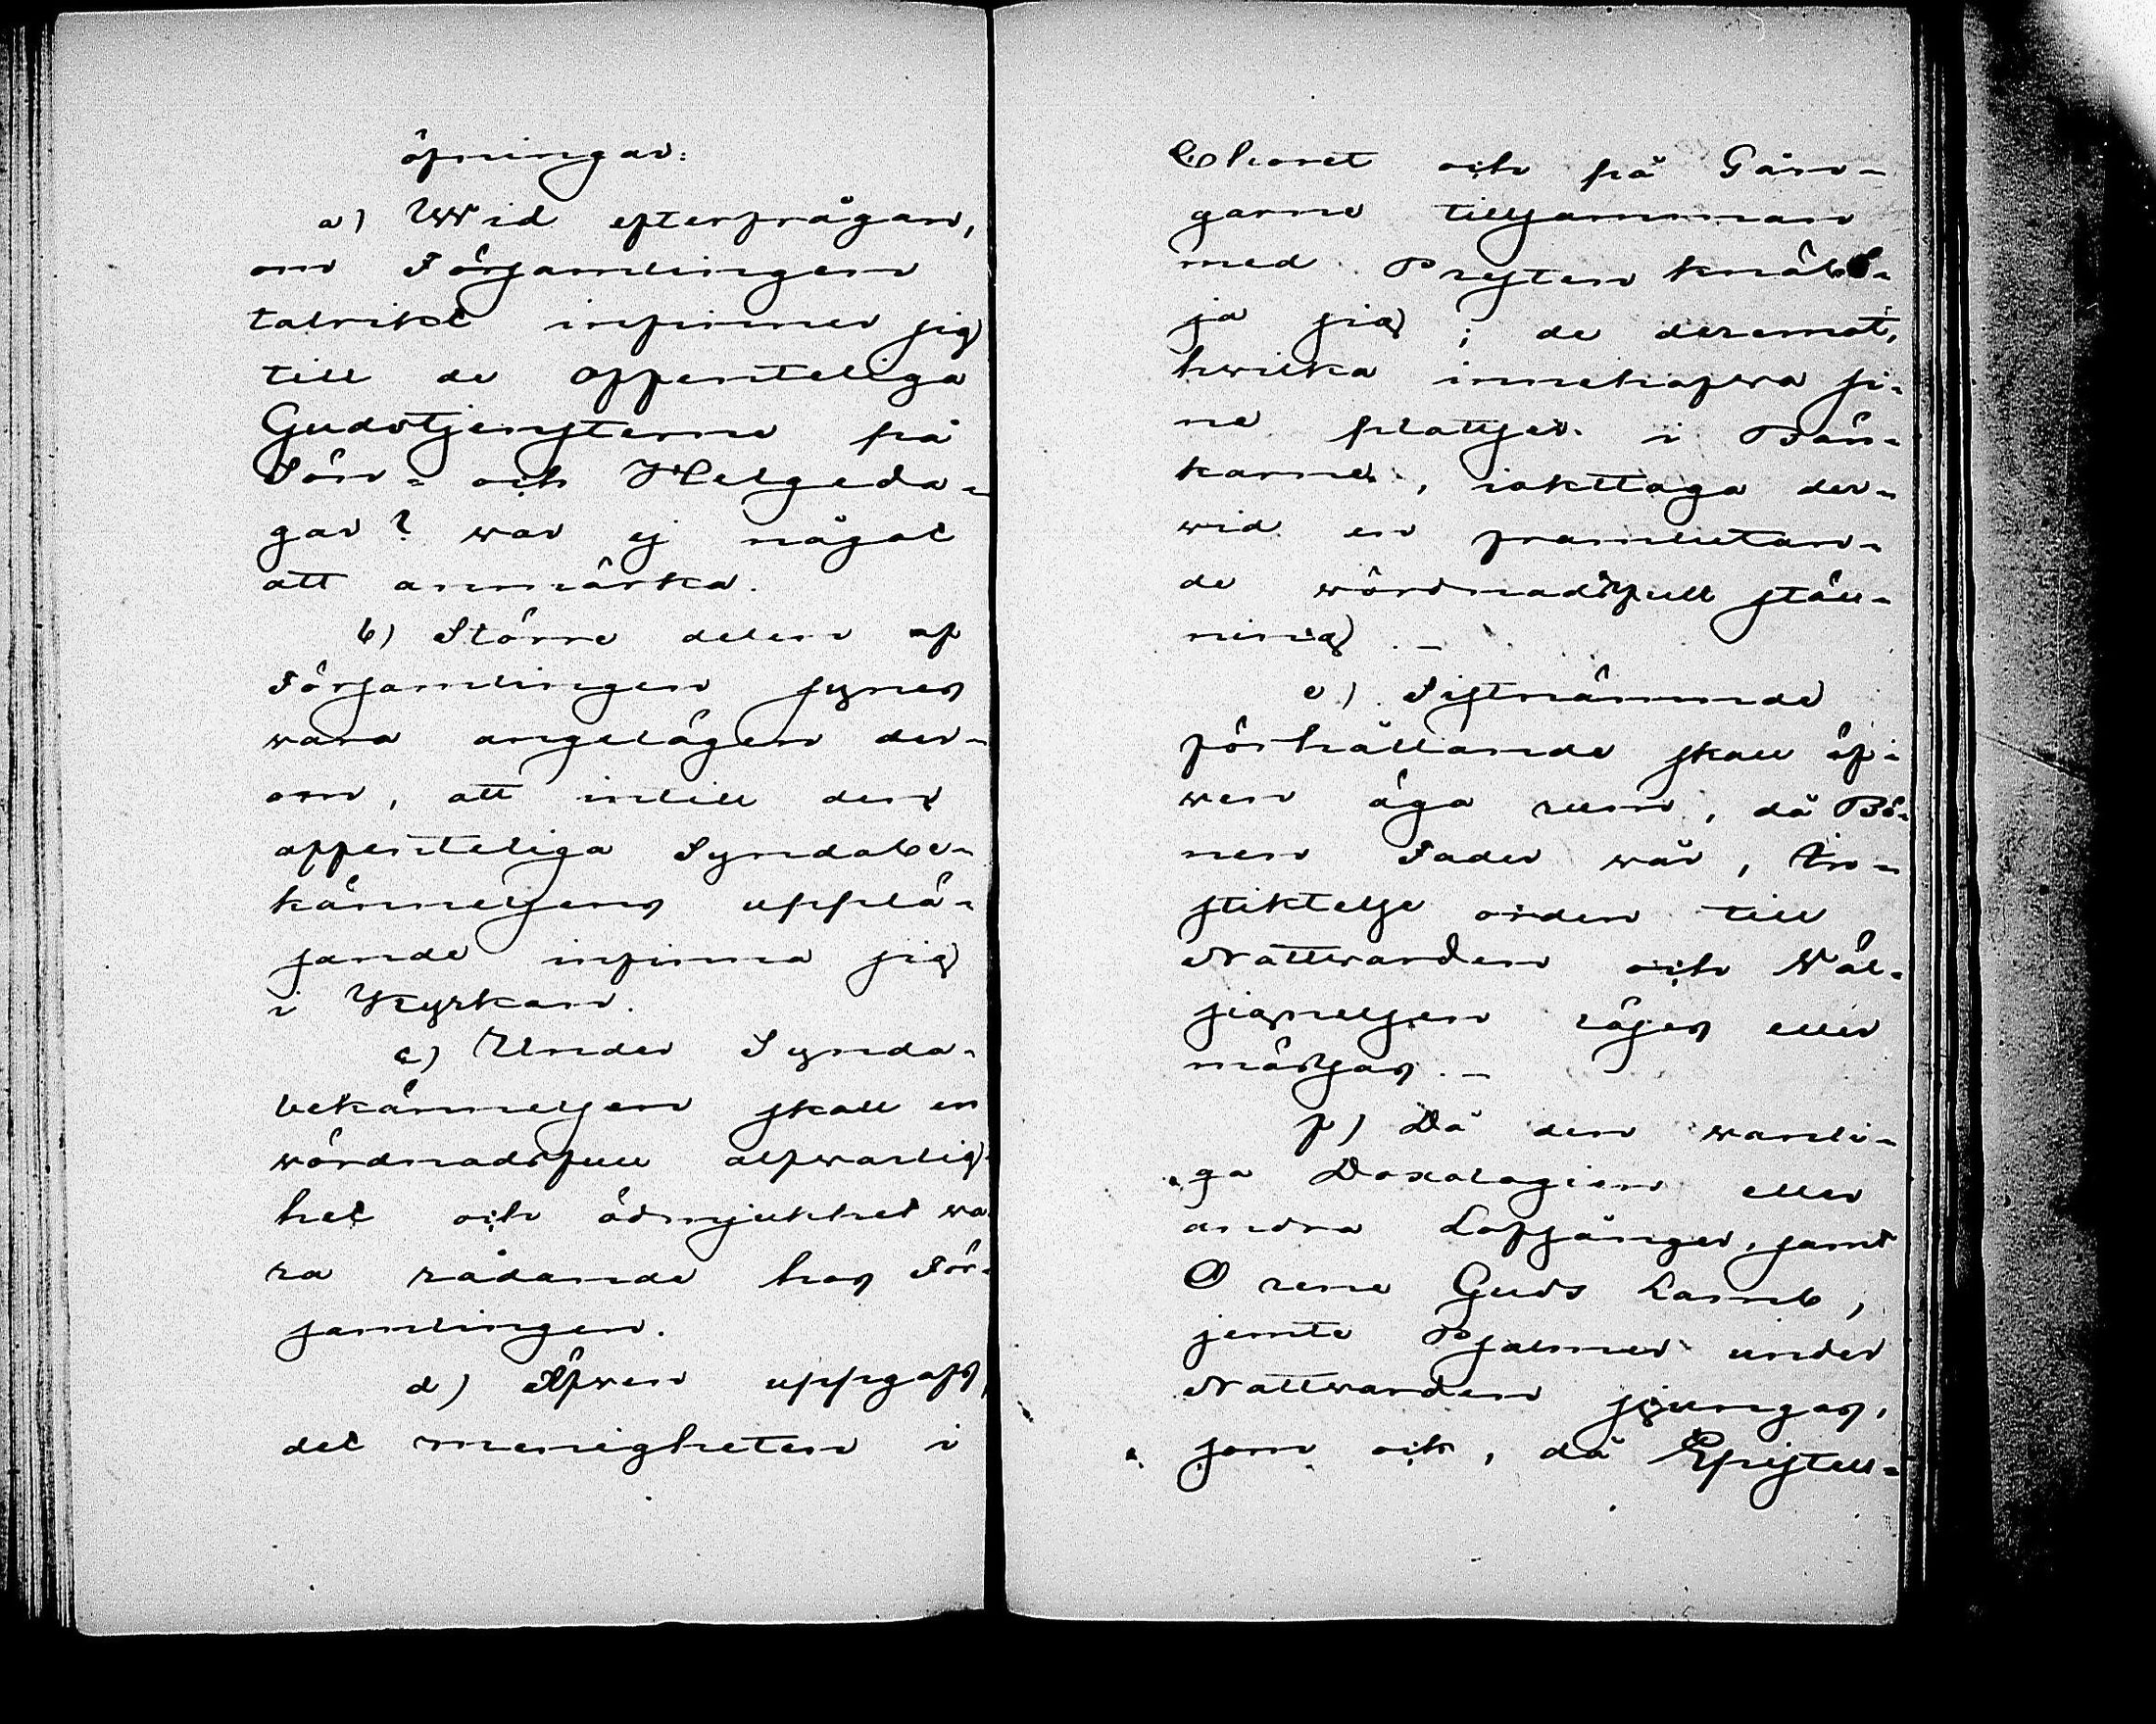 öfningar:
a) Wid efterfrågan,
om Församlingen
talrikt infinner sig
till de offenteliga
Gudstjensterne på
Sön- och Helgeda-
gar? war ej något
att anmärka.
b) Större delen af
Församlingen synes
wara angelägen der-
om, att intill den
offenteliga Syndabe-
kännelsens upplä-
sande infinna sig
i Kyrkan.
c) Under Synda-
bekännelsen skall en
wördnadsfull alfwarlig-
het och ödmjukhet wa-
ra rådande hos För-
samlingen.
d) Äfwen uppgafs,
det menigheten i
Choret och på Gån-
garne tillsamman
med Presten knäbö-
ja sig; de deremot,
hwilka innehafwa si-
ne platser i Bän-
karne, iakttaga der-
wid en framlutan-
de wördnadsfull ställ-
ning. –
e) Sistnämnde
förhållande skall äf-
wen äga rum, då Bö-
nen Fader wår, In-
stiktelse orden till
Nattwarden och Wäl-
signelsen läses eller
mässas. –
f) Då den wanli-
ga Doxologien eller
andra Lofsånger, samt
O rene Guds Lamb,
jemte Psalmer under
Nattwarden sjunges,
som och, då Epistel-